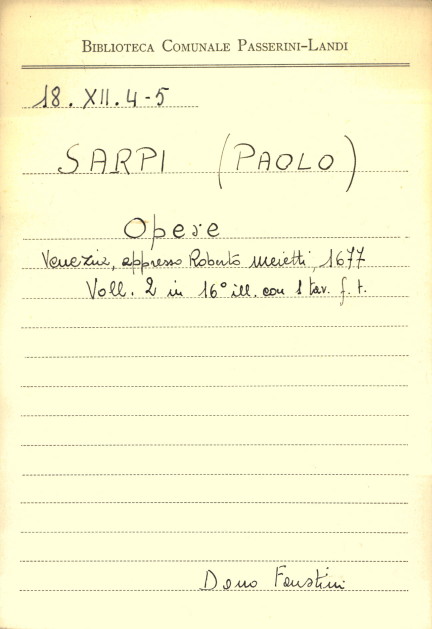 BIBLIOTECA COMUNALE PASSERINI-LANDI
18. XII. 4-5
SARPI (PAOLO)
Opere
Venezia, appresso Roberto Meietti, 1677
Voll. 2 in 16° ill. con 1 tav. f. t.
Dono Faustini